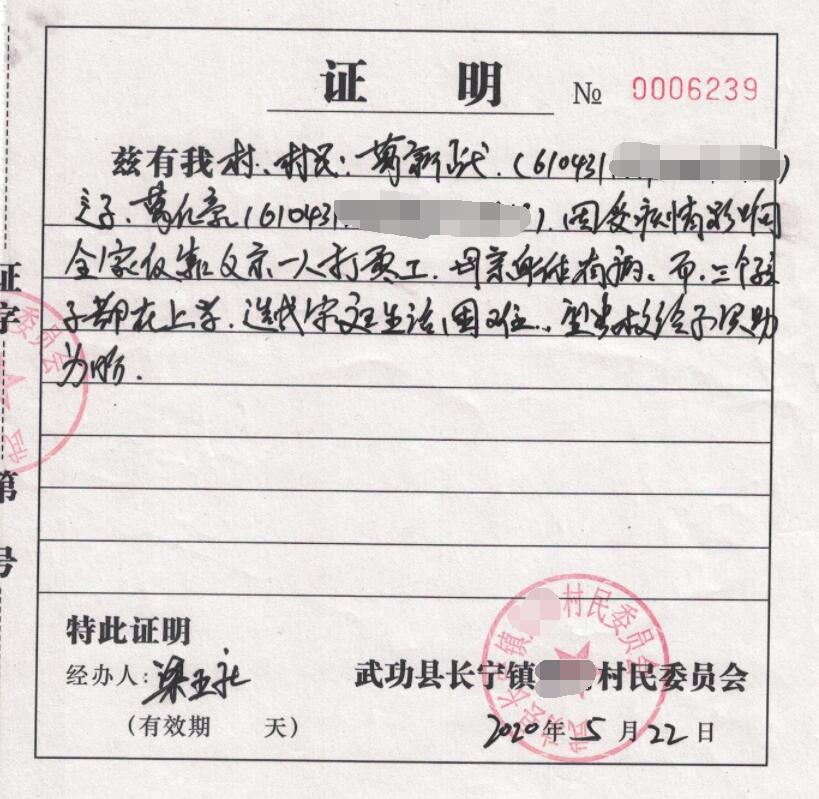 证 明 № 0006239
兹有我村、村民:葛新武.(610431)
之子.葛仁豪(610431).因受疫情影响
全家仅靠父亲一人打零工.母亲身体有病.而.三个孩
子都在上学.造成家庭生活困难..望贵校给予资助
为盼.
证字
第
号
特此证明
经办人:梁
武功县长宁镇 村民委员会
(有效期 天)
2020年5月22日
村民委员会